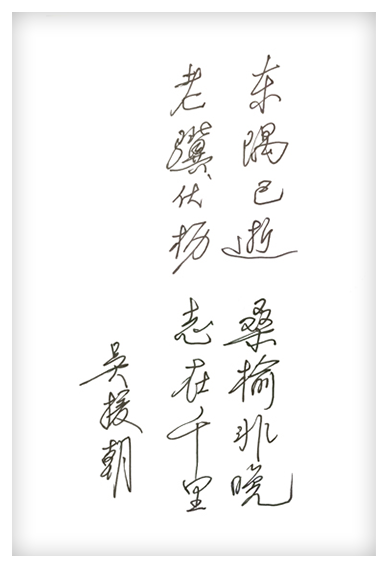 东隅已逝 桑榆非晚
老骥伏枥 志在千里
吴援朝